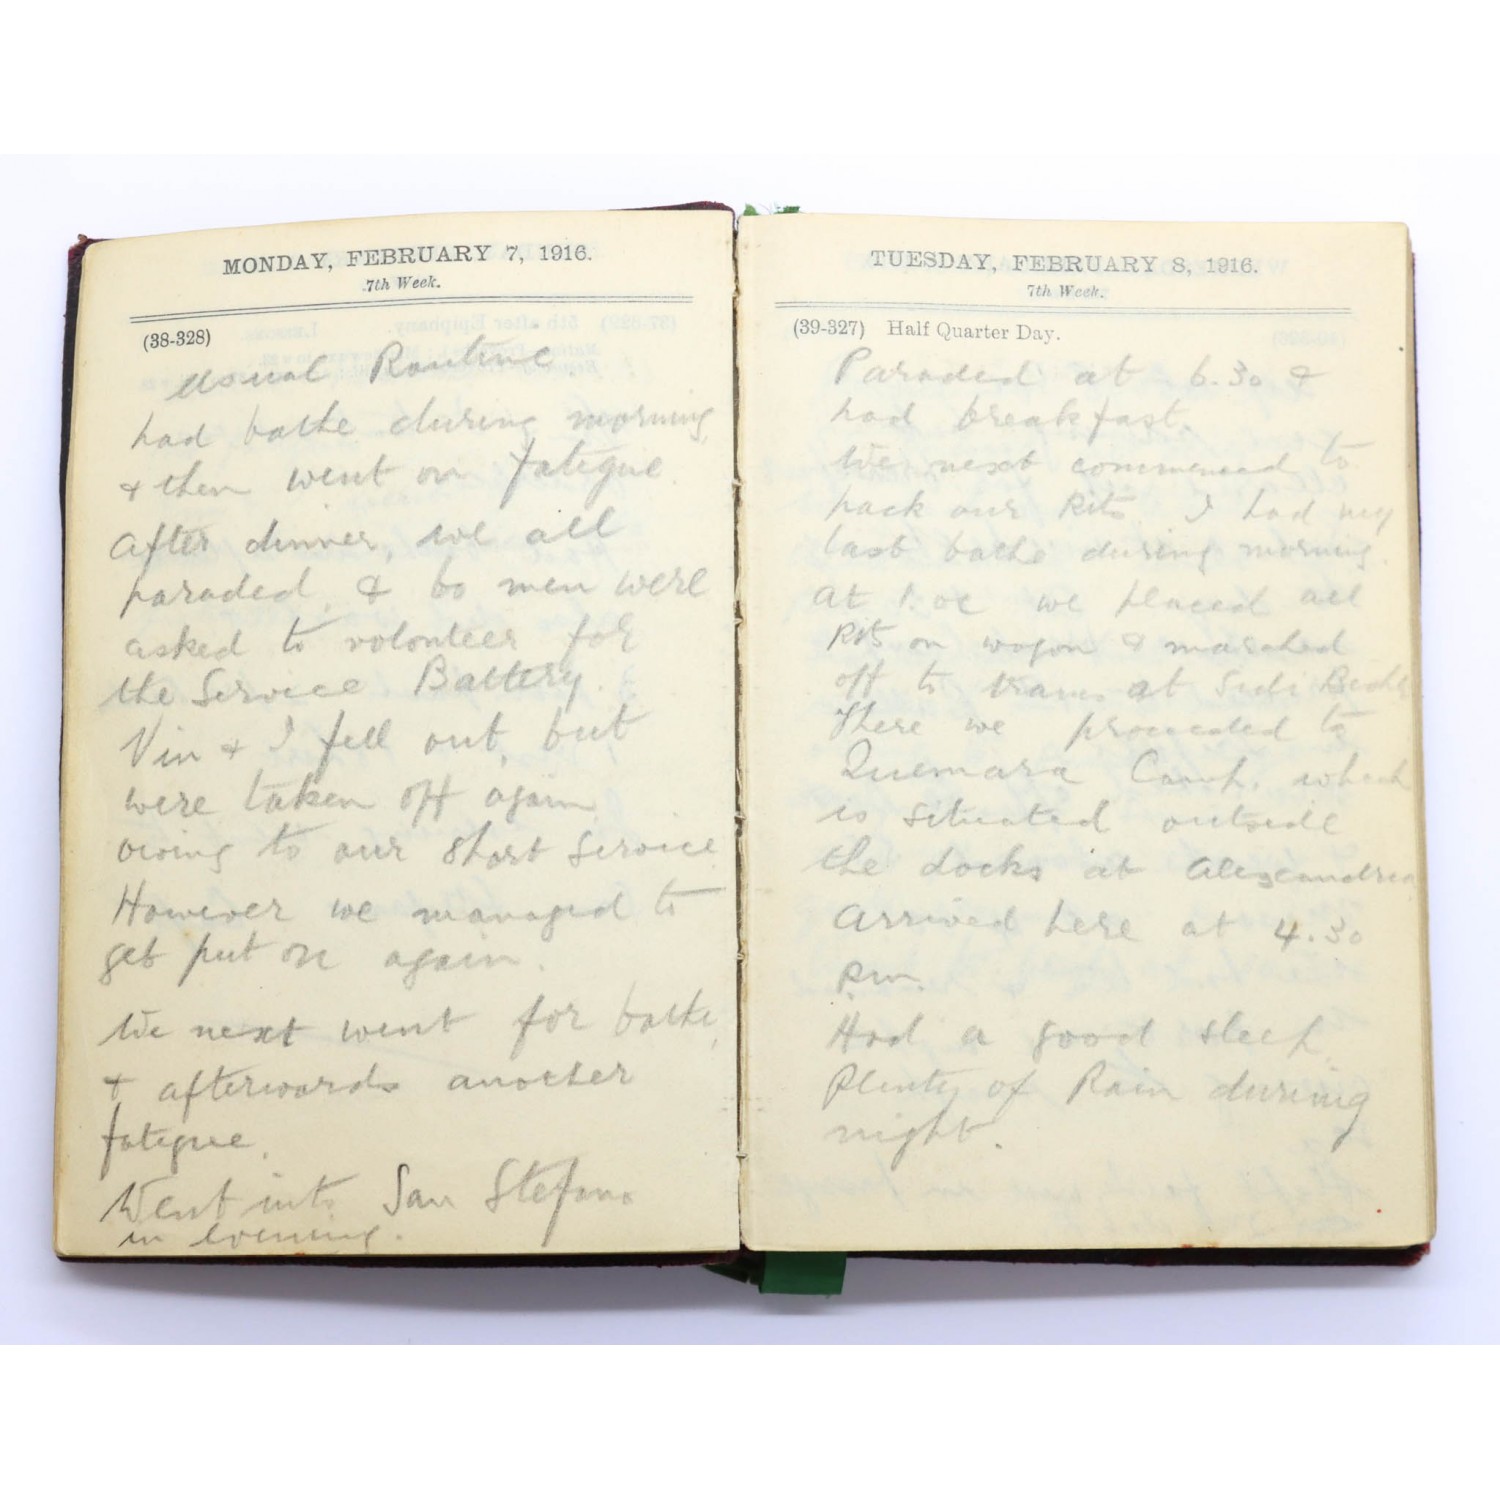 MONDAY, FEBRUARY 7, 1916.
7th Week.
(38-328)
Usual Routine.
had bathe during morning,
& then went on fatigue.
After dinner, we all
paraded, & 60 men were
asked to volonteer for
the Service Battery.
Vin & I fell out, but
were taken off again
owing to our short service
However we managed to
get put on again.
We next went for bathe,
& afterwards another
fatigue.
Went into San Stefano
in evening.
TUESDAY, FEBRUARY 8, 1916.
7th Week.
(39-327) Half Quarter Day.
Paraded at 6.30 &
had breakfast.
We next commenced to
pack our kits. I had my
last bathe during morning.
At 1. oc we placed all
kits on wagon & marched
off to trams at Sidi
There we proceeded to
Camp, which
is situated outside
the docks at Alexandria
Arrived here at 4.30
P.m.
Had a good sleep.
Plenty of Rain during
night.